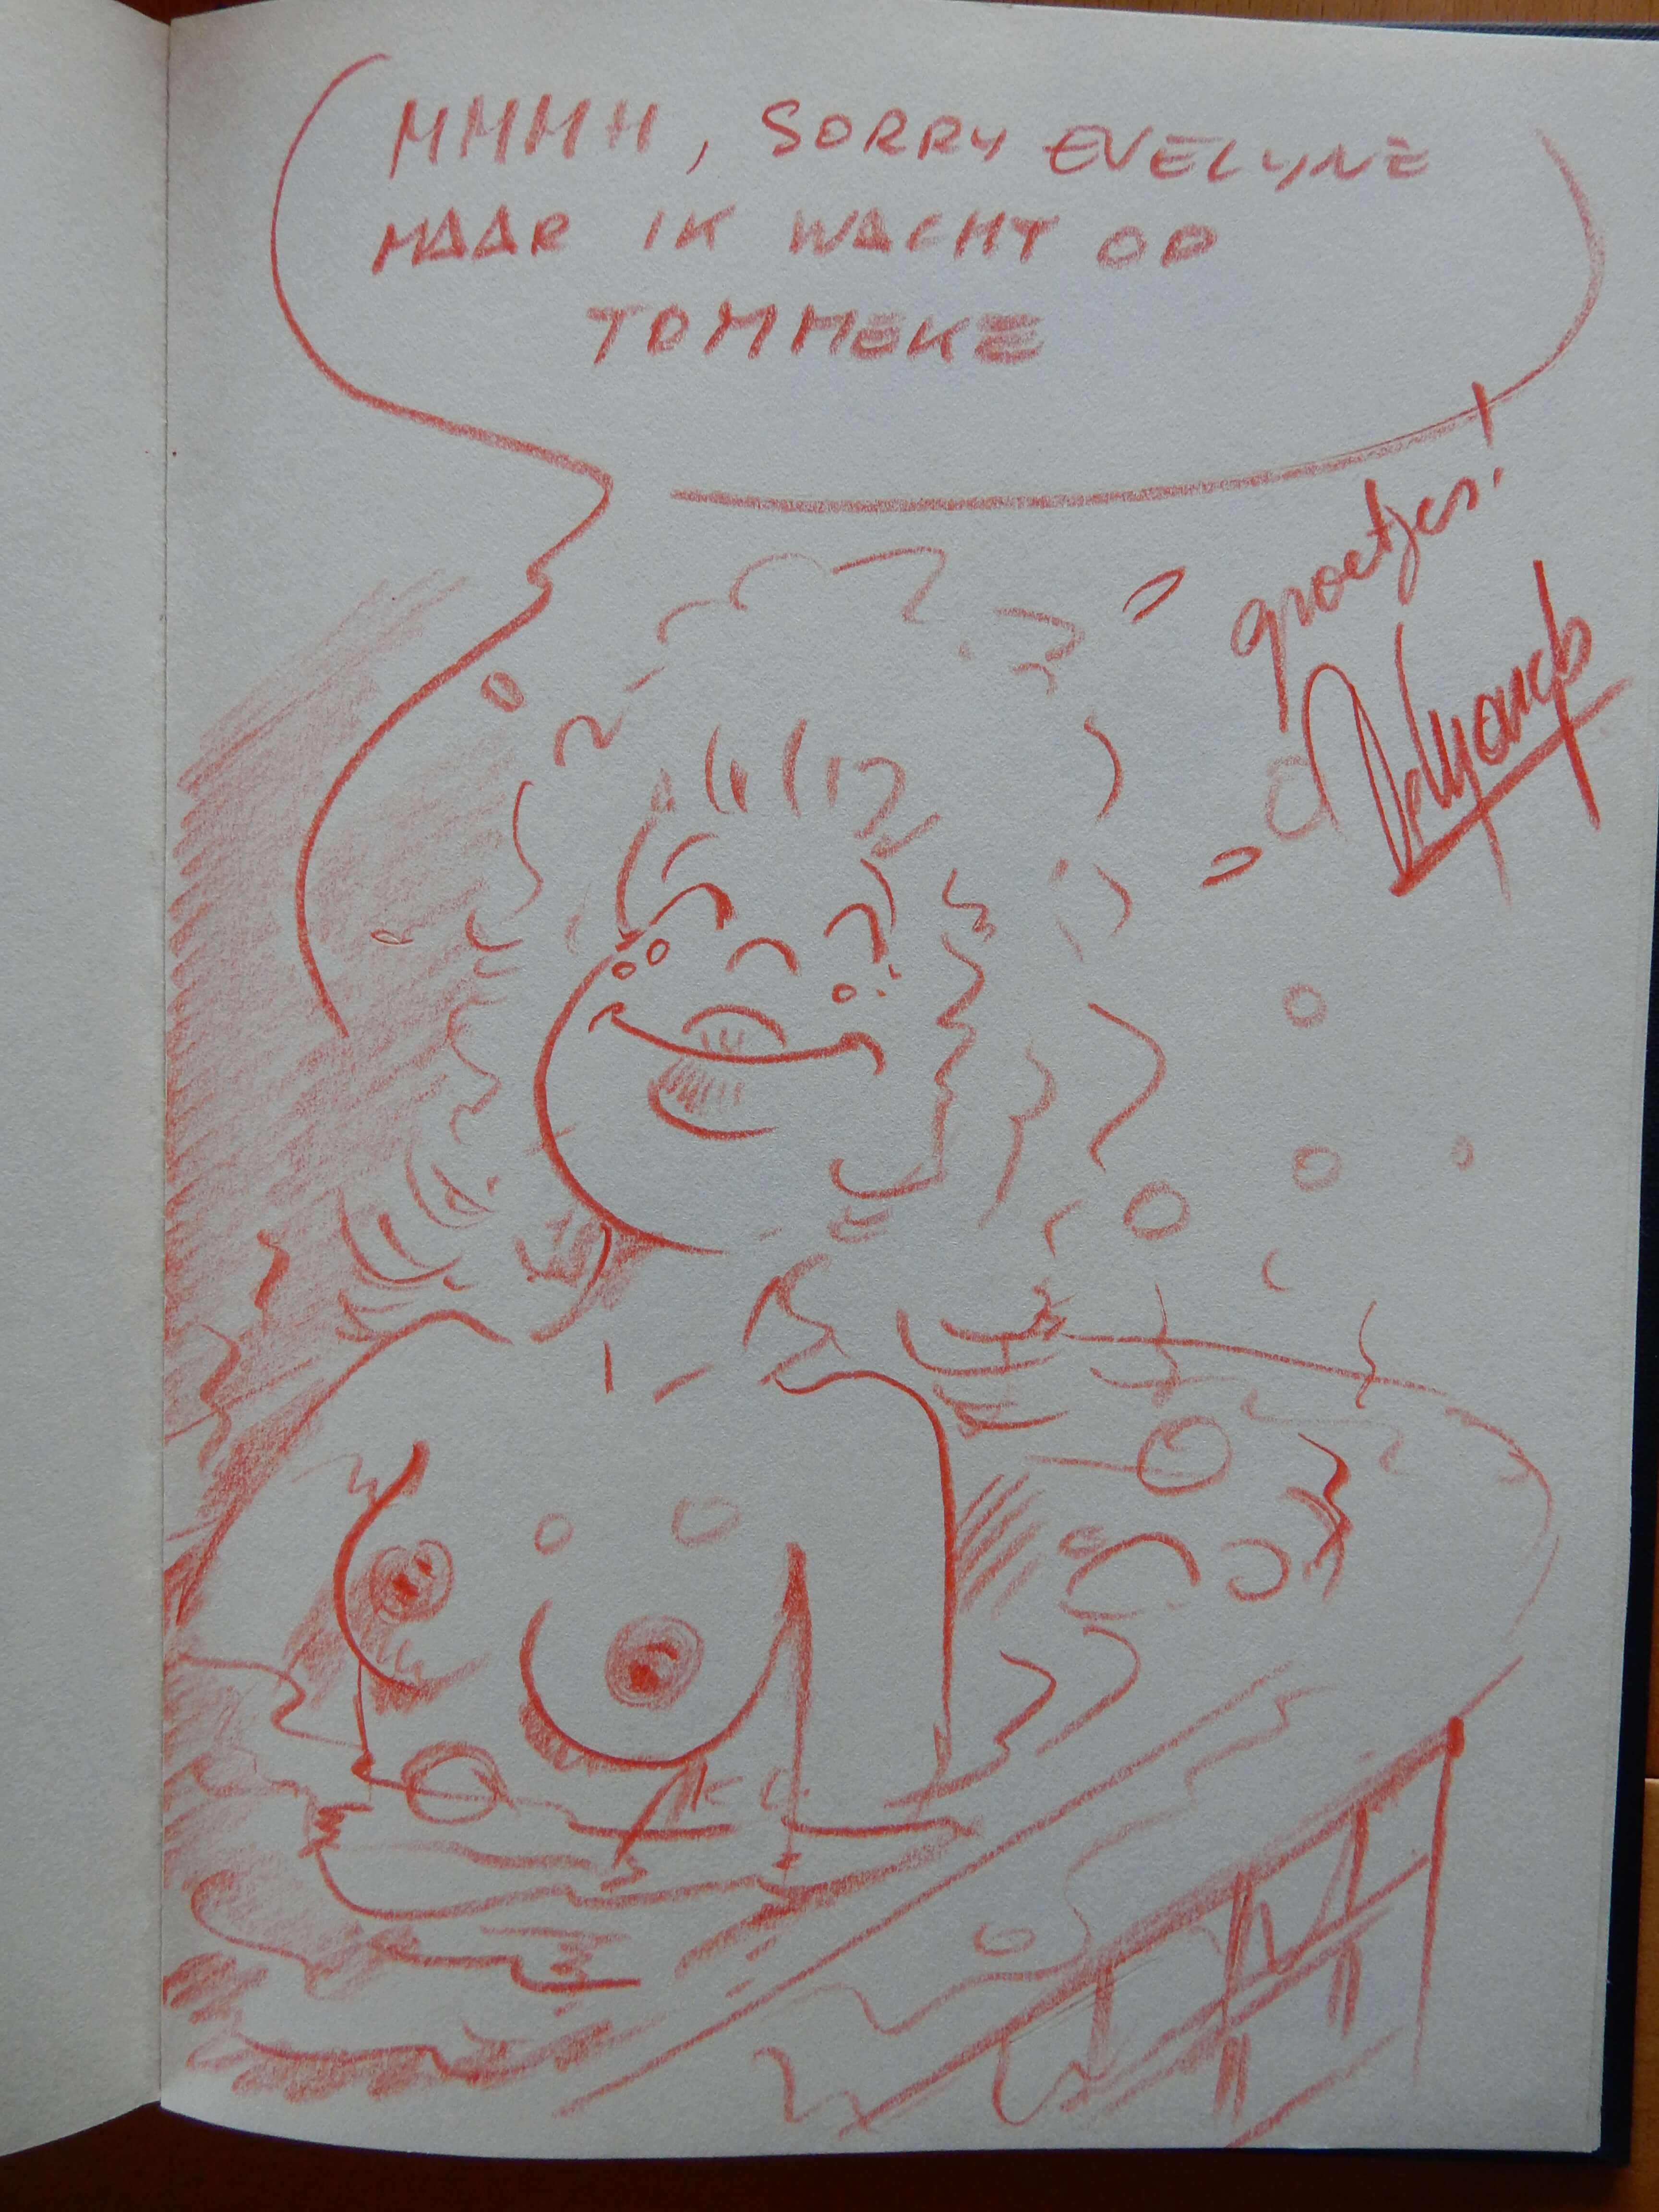 MMMH, SORRY EVELYNE
MAAR IK WACHT OP
TOMMEKE
groetjes!